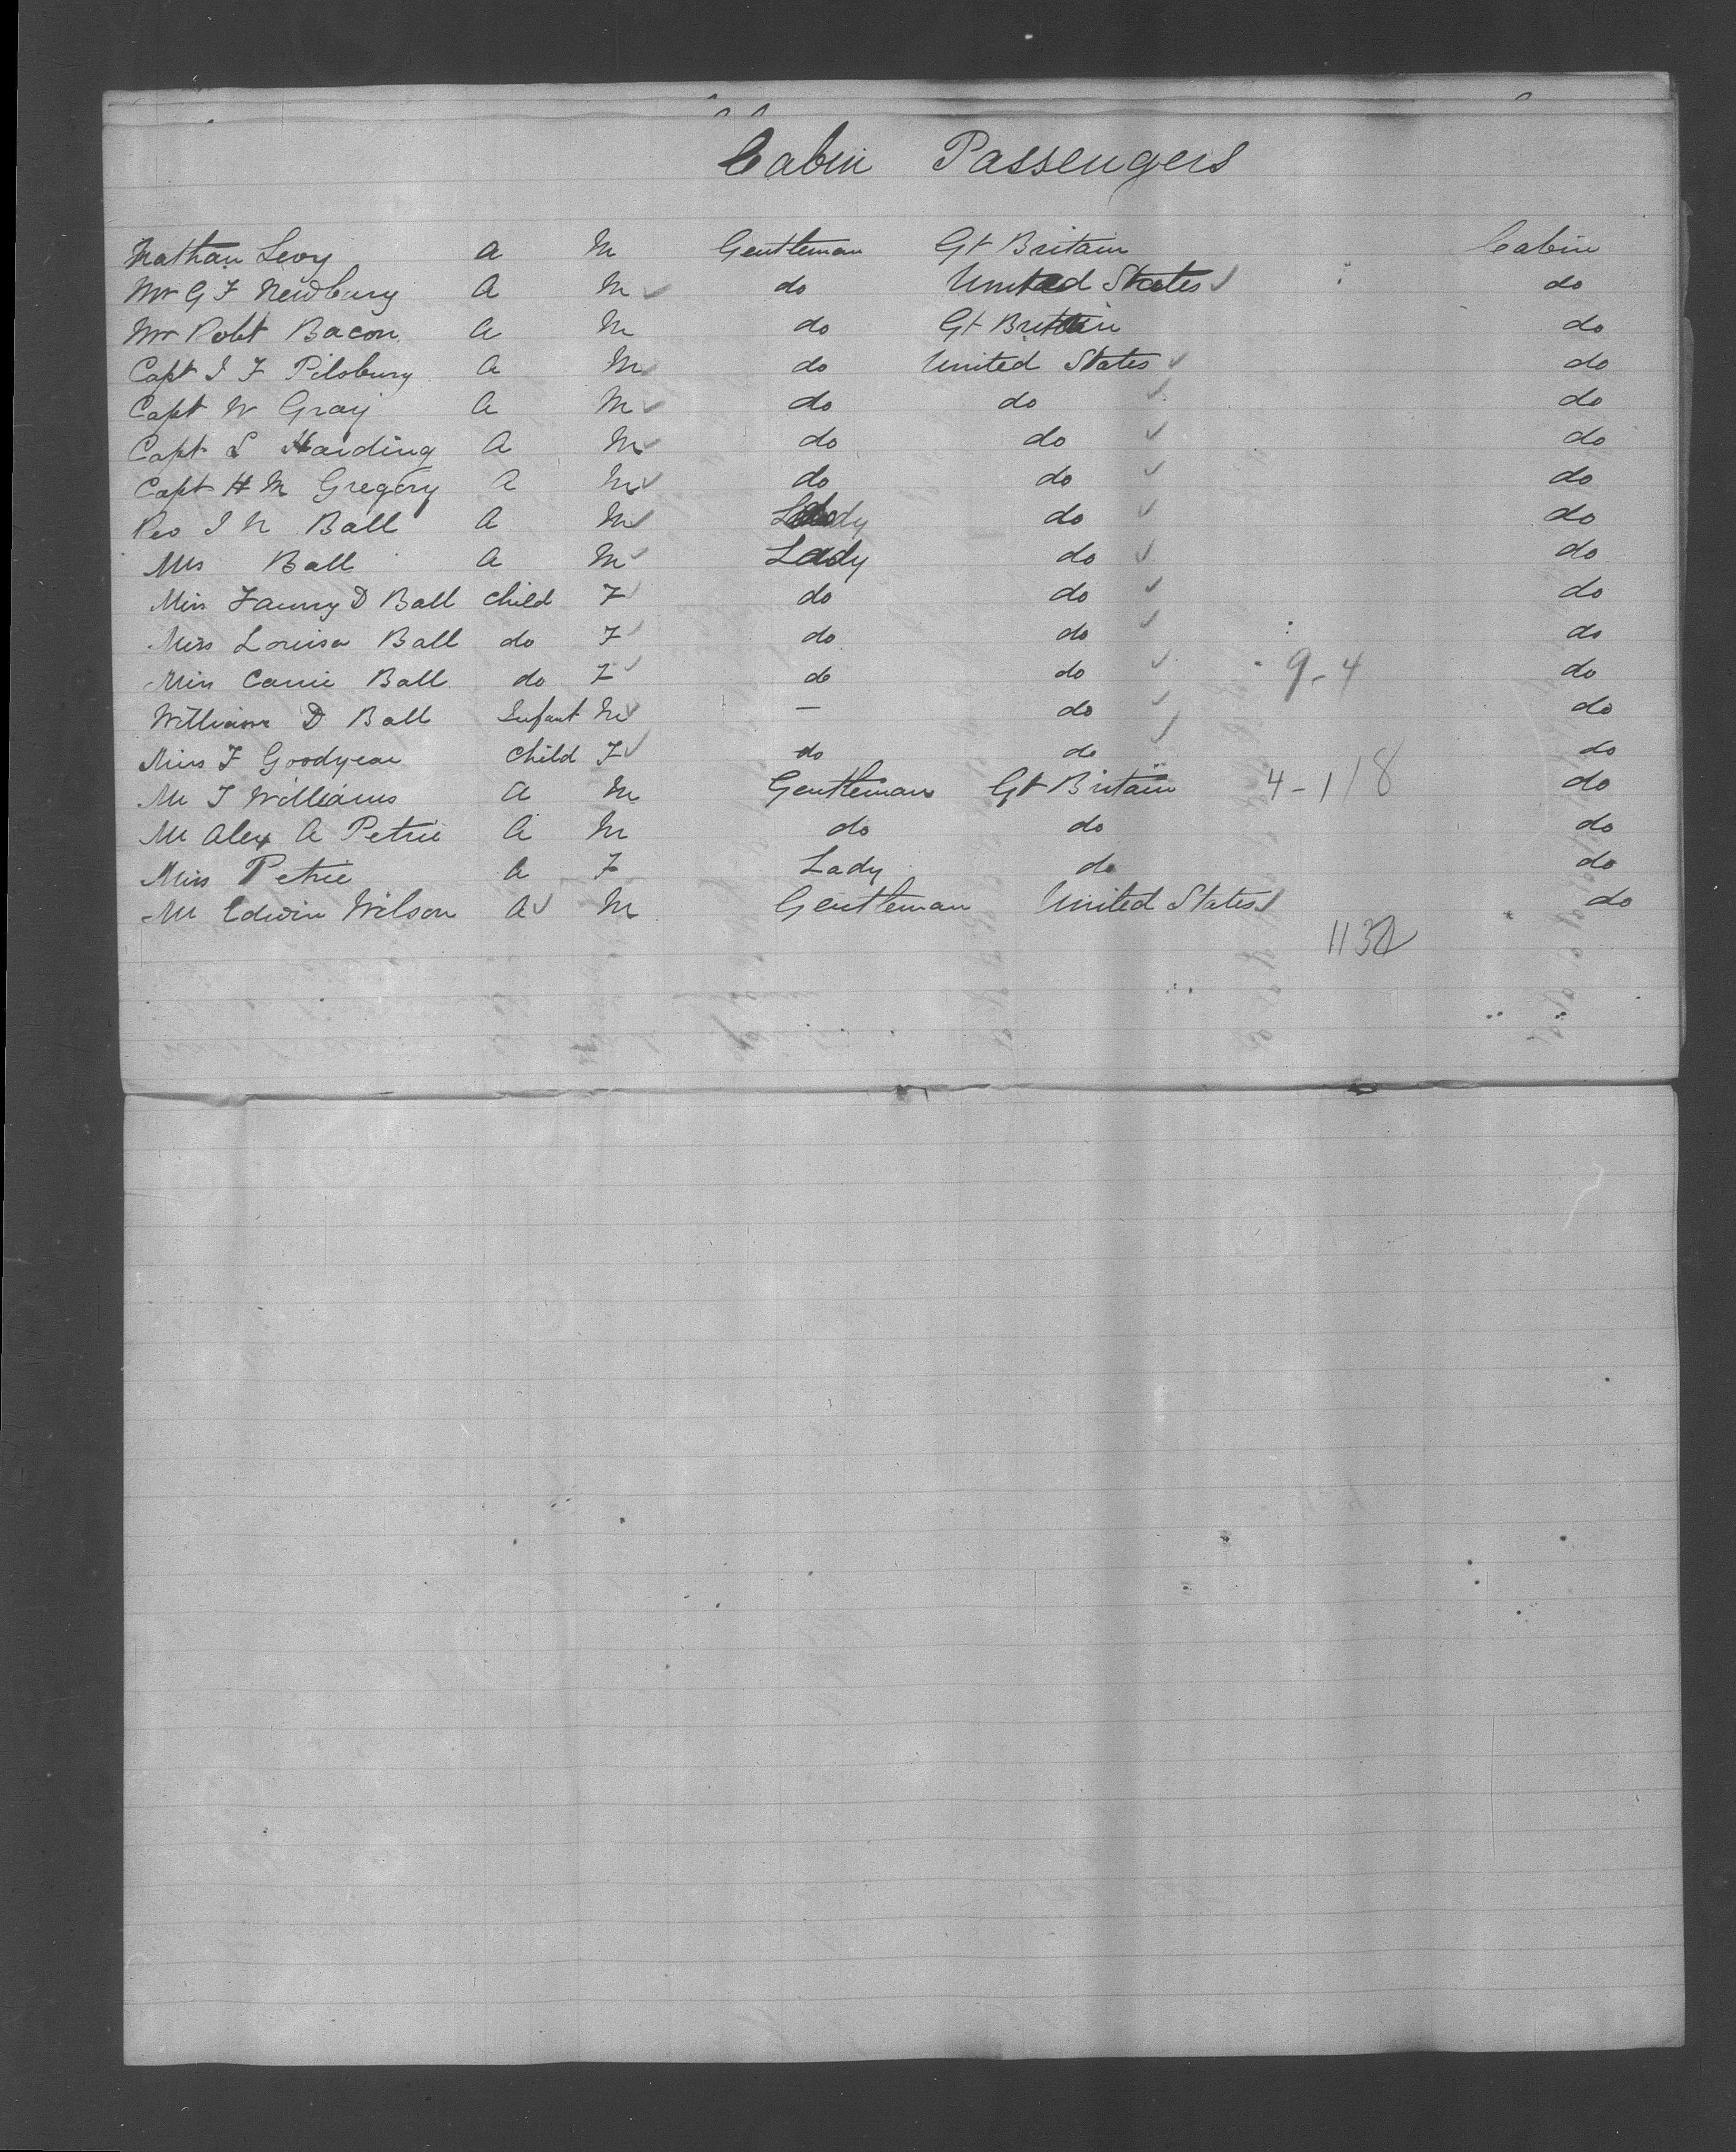 Cabin Passengers
Nathan Levy A M Gentleman Gt Britain Cabin
Mr G F Newbury A M do United States do
Mr Robt Bacon A M do Gt Britain do
Capt I F Pilsbury A M do United States do
Capt W Gray A M do do do
Capt S Harding A M do do do
Capt H M Gregory A M do do do
Rev I N Ball A M do do
Mrs Ball A M Lady do do
Miss Fanny D Ball Child F do do do
Miss Louisa Ball do F do do do
Miss Carrie Ball do F do do 9-4 do
William D Ball Infant M — do do
Miss F Goodyear Child F do do do
Mr T Williams A M Gentleman Gt Britain 4-1/8 do
Mr Alex A Petrie A M do do do
Miss Petrie A F Lady do do
Mr Edwin Wilson A M Gentleman United States do